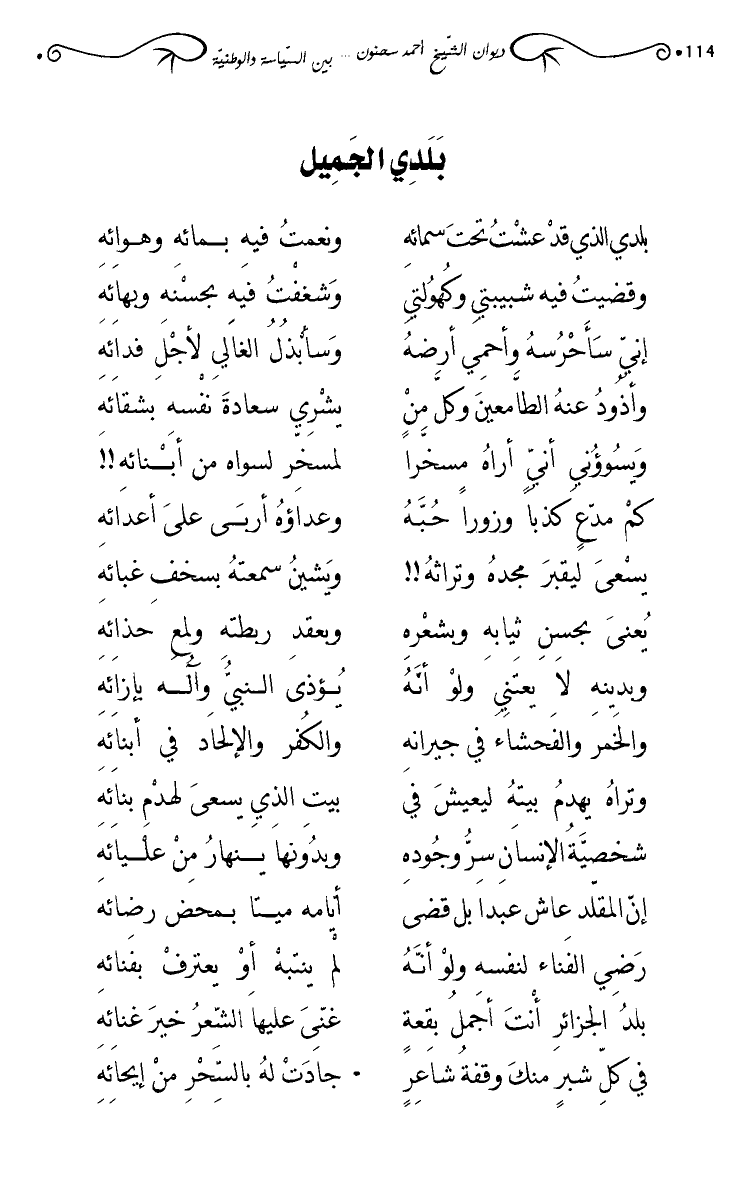 114 ديوان الشّيخ أحمد سحنون ... بين السّياسة والوطنيّة
بَلَدِي الجَمِيل
بلدي الذي قدْ عشْتُ تحتَ سمائهِ ونعمتُ فيهِ بـمائهِ وهـوائهِ
وقضيتُ فيه شبيبتي وكُهُولتيِ وَشغفْتُ فيهِ بحسْنهِ وبهائهِ
إنيّ سَأَحْرُسهُ وأحمِي أرضهُ وَسأبْذلُ الغاليِ لأجْلِ فدائهِ
وأذُودُ عنهُ الطّامعينَ وكلّ منْ يشْرِي سعادةَ نفْسهِ بشقائهِ
وَيسُوؤُنيِ أنيّ أراهُ مسخّراً لمسخّرٍ لسواه من أبْـنائهِ!!
كمْ مدّعٍ كذباً وزوراً حُبَّهُ وعداؤهُ أربَـى علىَ أعدائهِ
يسْعىَ ليقبرَ مجدهُ وتراثهُ!! ويَشينُ سمعتهُ بسخفِ غبائهِ
يُعنىَ بحسنِ ثيابهِ وبشعْرهِ وبعقدِ ربطتهِ ولمعِ حذائهِ
وبدينهِ لاَ يعتنيِ ولوْ أنَّهُ يُـؤذى الـنبيُّ وآلُـه بإزائهِ
والخمرِ والفحشاء في جيرانهِ والكُفرِ والإلحادِ فيِ أبنائهِ
وتراهُ يهدمُ بيتهُ ليعيشَ في بيتِ الذيِ يسعىَ لهدْمِ بنائهِ
شخصيَّةُ الإنسانِ سرُّ وجُودهِ وبدُونهاَ يـنهارُ منْ علْـيائهِ
إنّ المقلّد عاش عبدا بل قضى أيامه ميـتا بـمحض رضائهِ
رَضيِ الفناء لنفسهِ ولوْ أنَّـهُ لمْ ينتبهْ أوْ يعترفْ بفنائهِ
بلدُ الجزائرِ أنْتَ أجملُ بقعةٍ غنّىَ عليهاَ الشّعرُ خيرَ غنائهِ
في كلّ شبرٍ منكَ وقفةُ شاعرٍ جادَتْ لهُ بالسّحْرِ منْ إيحائِهِ